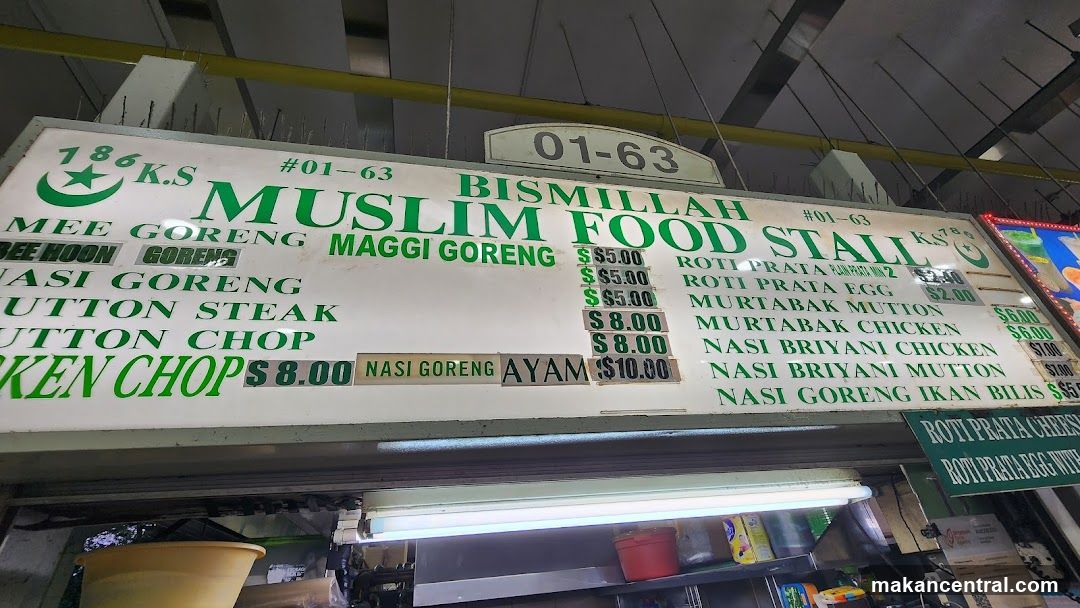 01-63
786
K.S
#01-63
BISMILLAH
#01-63
MUSLIM FOOD STALL
K.S
786
MEE GORENG
BEE HOON GORENG MAGGI GORENG $5.00
$5.00
NASI GORENG $5.00
MUTTON STEAK $8.00
MUTTON CHOP $8.00
CHICKEN CHOP $8.00 NASI GORENG AYAM $10.00
ROTI PRATA PLAIN PRATA MIN 2 $2.00
ROTI PRATA EGG $2.00
MURTABAK MUTTON $6.00
MURTABAK CHICKEN $6.00
NASI BRIYANI CHICKEN $7.00
NASI BRIYANI MUTTON $7.00
NASI GORENG IKAN BILIS
ROTI PRATA CHEESE
ROTI PRATA EGG WITH
makancentral.com